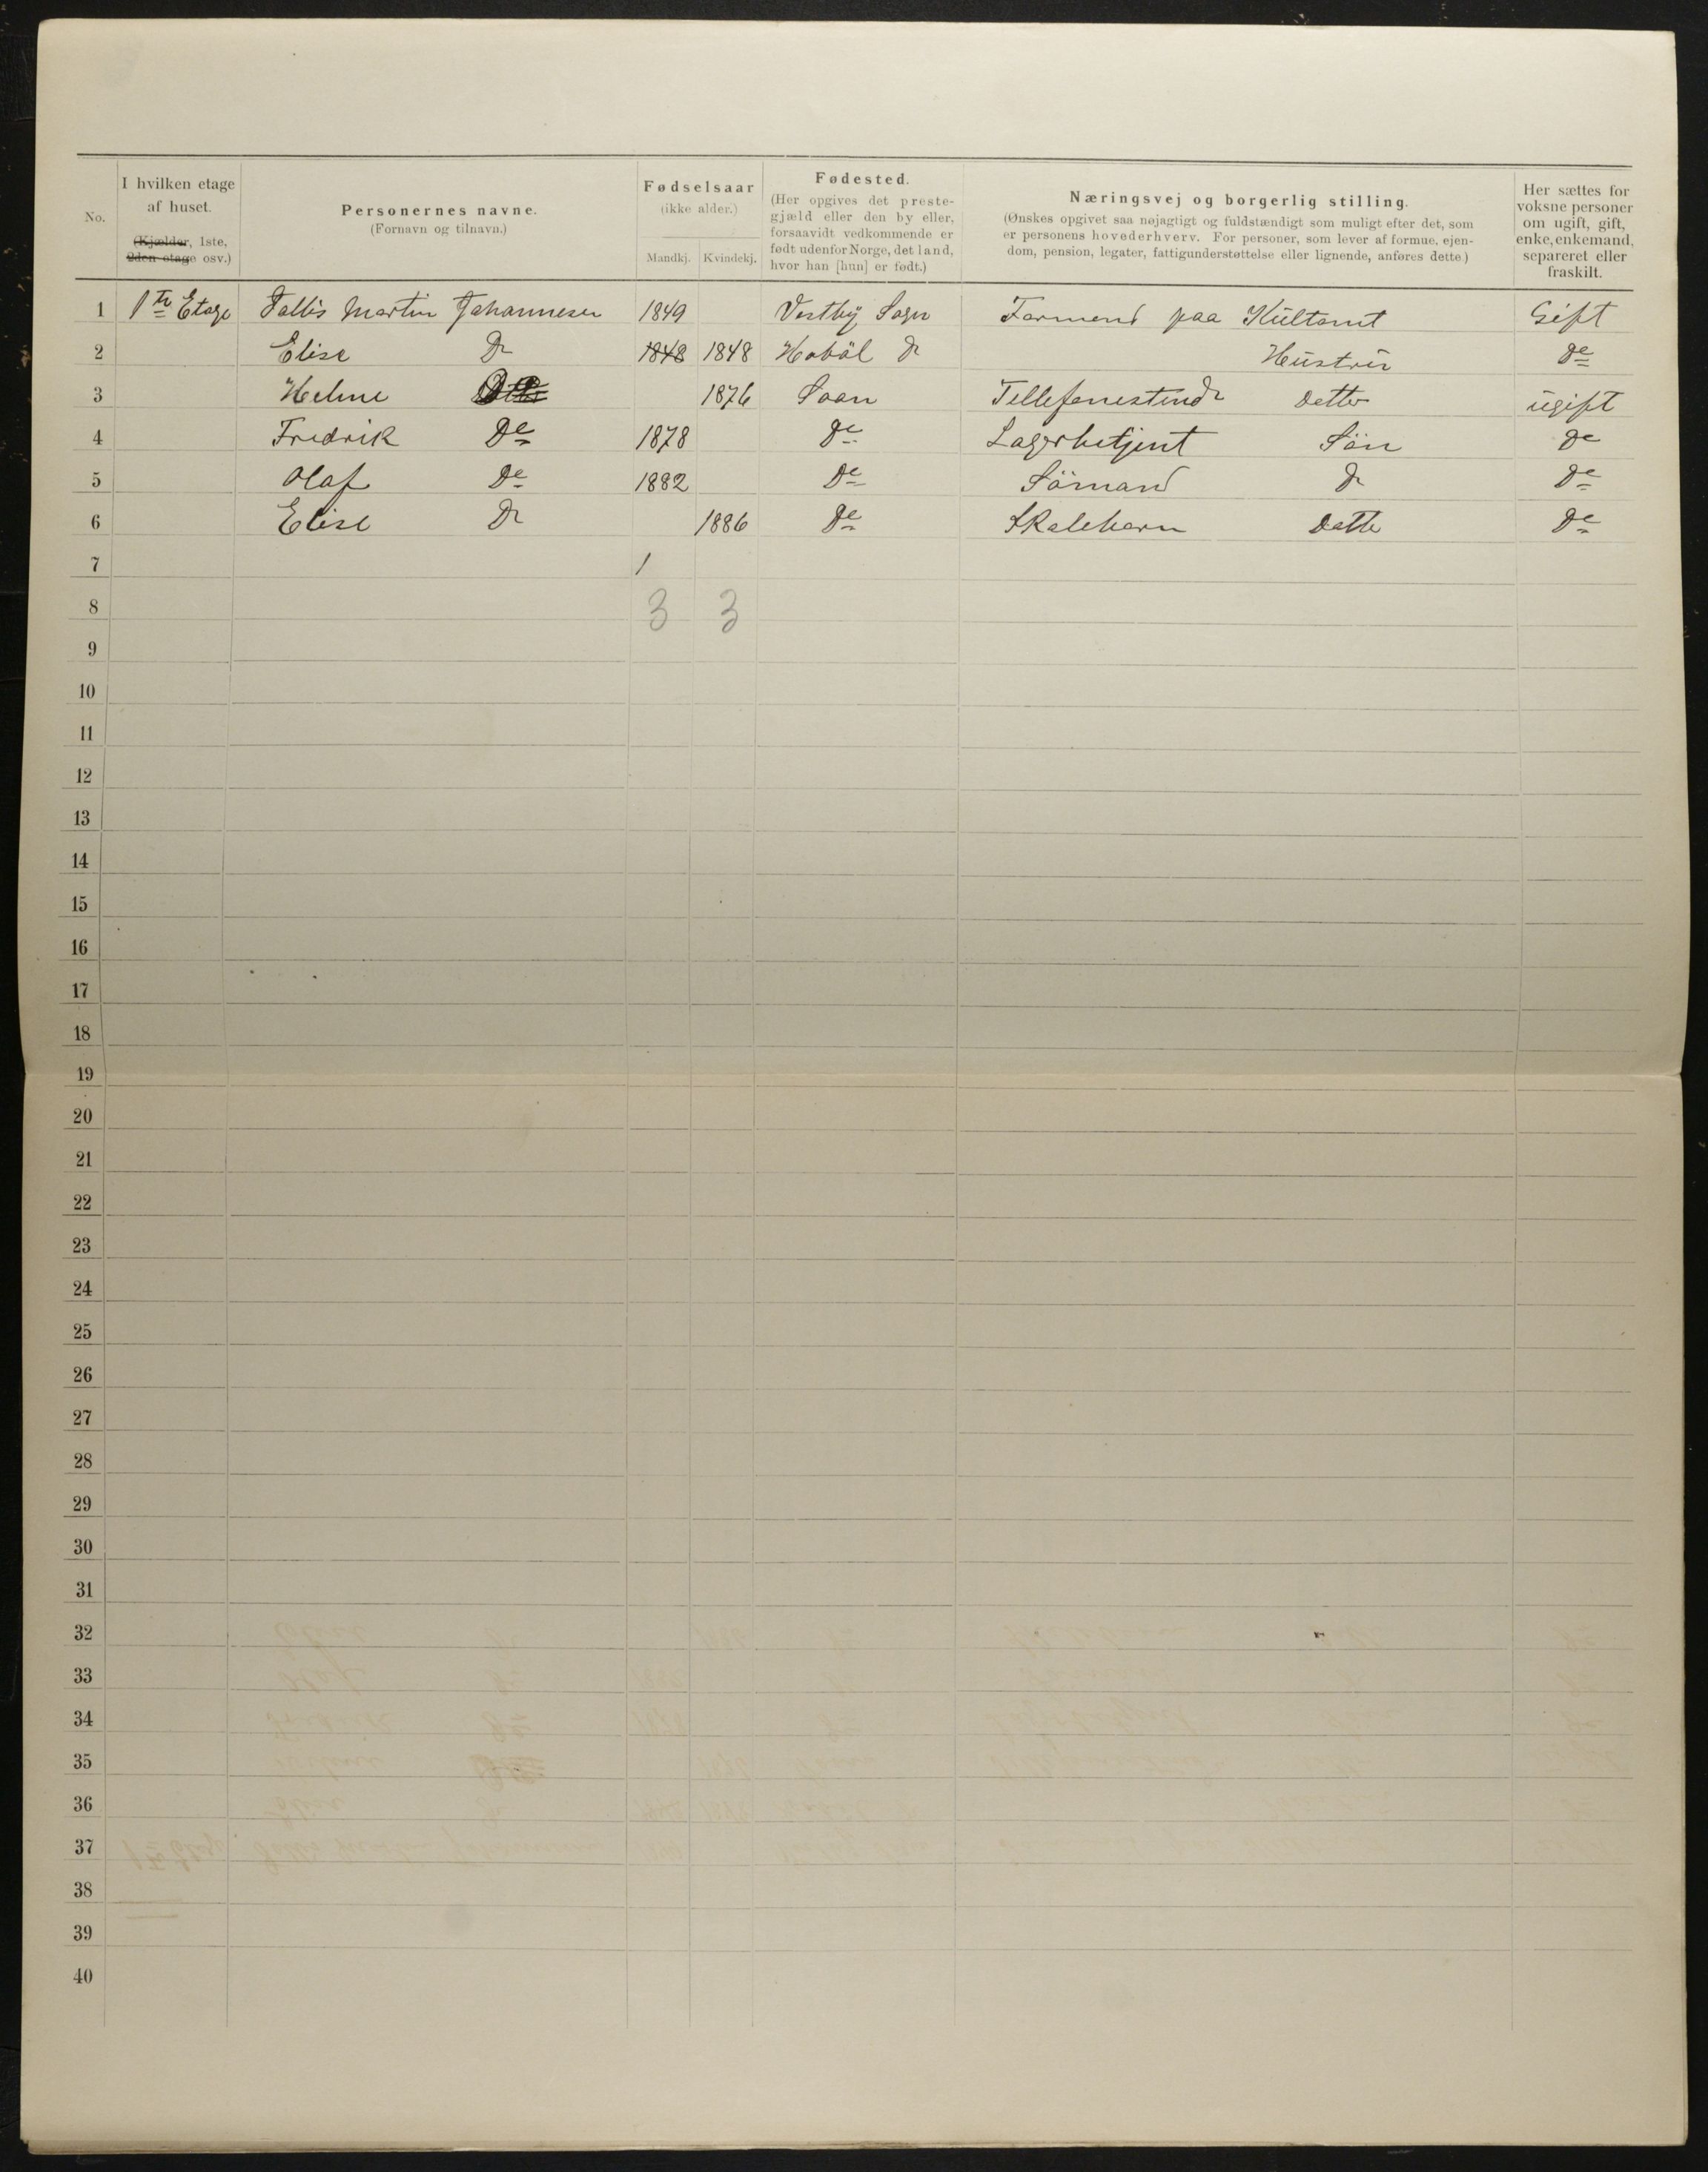 No. | I hvilken etage af huset. (Kjælder, 1ste, 2den etage osv.) | Personernes navne. (Fornavn og tilnavn.) | Fødselsaar (ikke alder.) Mandkj. Kvindekj. | Fødested. (Her opgives det prestegjæld eller den by eller, forsaavidt vedkommende er født udenfor Norge, det land, hvor han [hun] er født.) | Næringsvej og borgerlig stilling. (Ønskes opgivet saa nøjagtigt og fuldstændigt som muligt efter det, som er personens hovederhverv. For personer, som lever af formue, ejendom, pension, legater, fattigunderstøttelse eller lignende, anføres dette.) | Her sættes for voksne personer om ugift, gift, enke, enkemand, separeret eller fraskilt.
1 1te Etage Martin Johannesen 1849 Vestby Sogn Formend paa Gift
2 Elise Do 1848 1848 Hoböl Do Hüstrü De
3 Helene 1876 Soon Datter ügift
4 Fredrik De 1878 De Lagerbetjent Sön De
5 Olaf De 1882 De Sömand Do De
6 Elise Do 1886 De Skolebarn Datte De
7 1
8 3 3
9
10
11
12
13
14
15
16
17
18
19
20
21
22
23
24
25
26
27
28
29
30
31
32
33
34
35
36
37
38
39
40